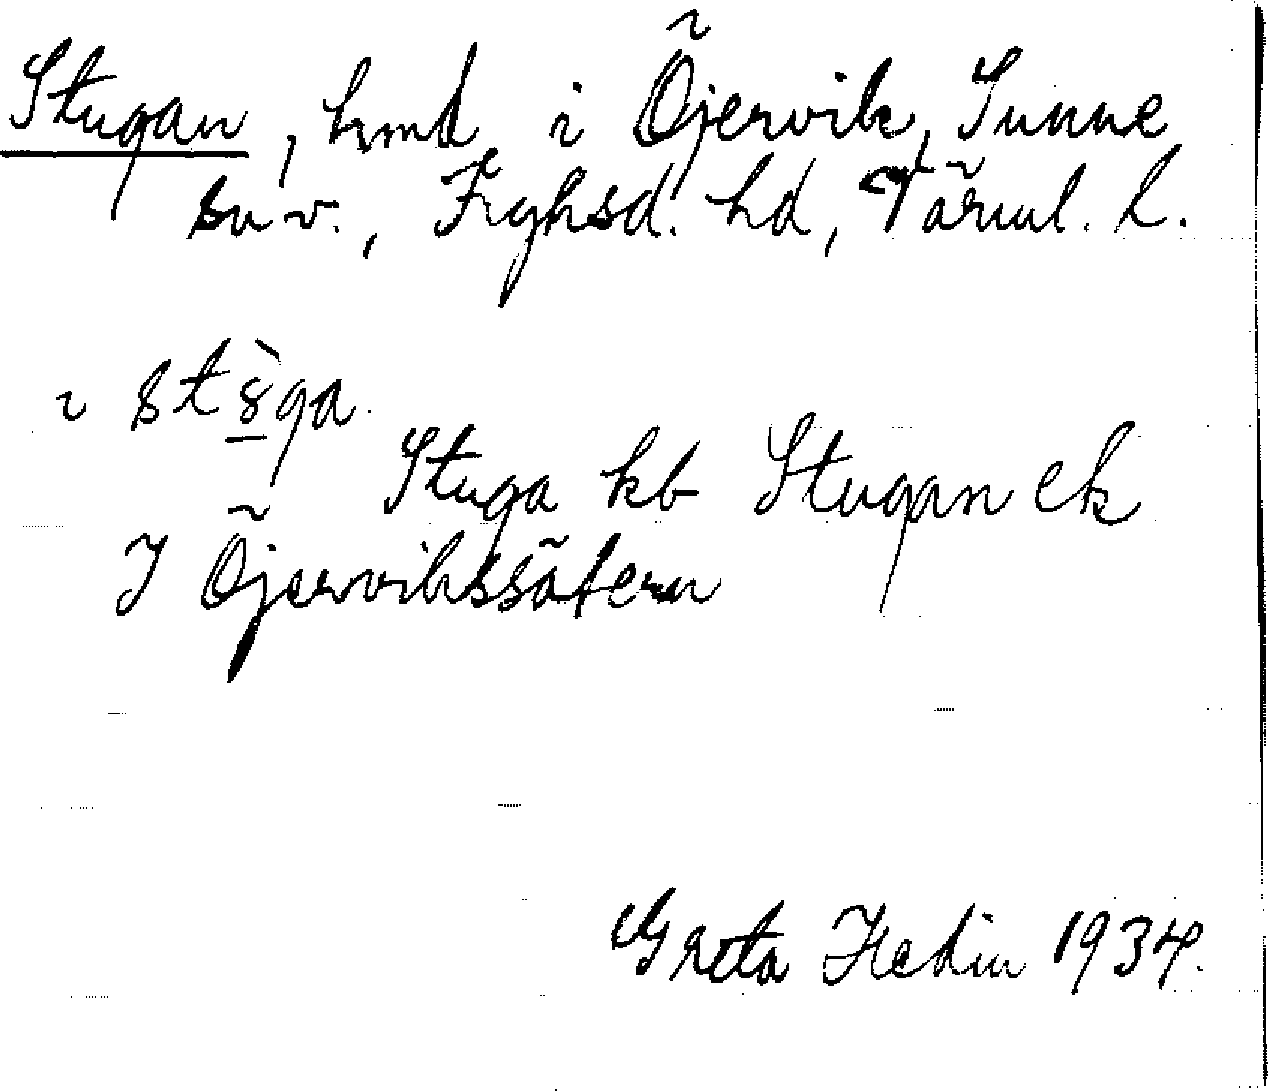 Stugan, hmd i Öjervik, Sunne
sn v., Fryksd. hd, Värml. l.
i st8̲̀ga.
Stuga kb Stugan ek
I Öjervikssätern
Greta Hedin 1934.